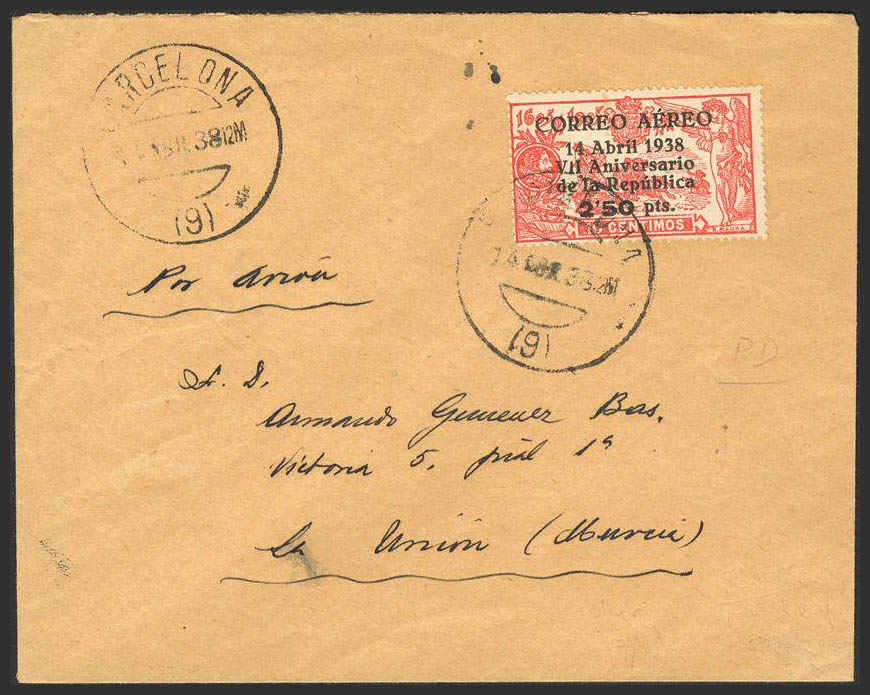 BARCELONA
14 ABR. 38 12M
(9)
1605 1905
CORREO AÉREO
14 Abril 1938
VII Aniversario
de la República
2'50 pts.
CENTIMOS
B. MAURA
14 ABR. 38 12M
(9)
Por avión
PD
Sr. D.
Armando Gimenez Bas.
Victoria 5, pral 1ª
La Unión (Murcia)